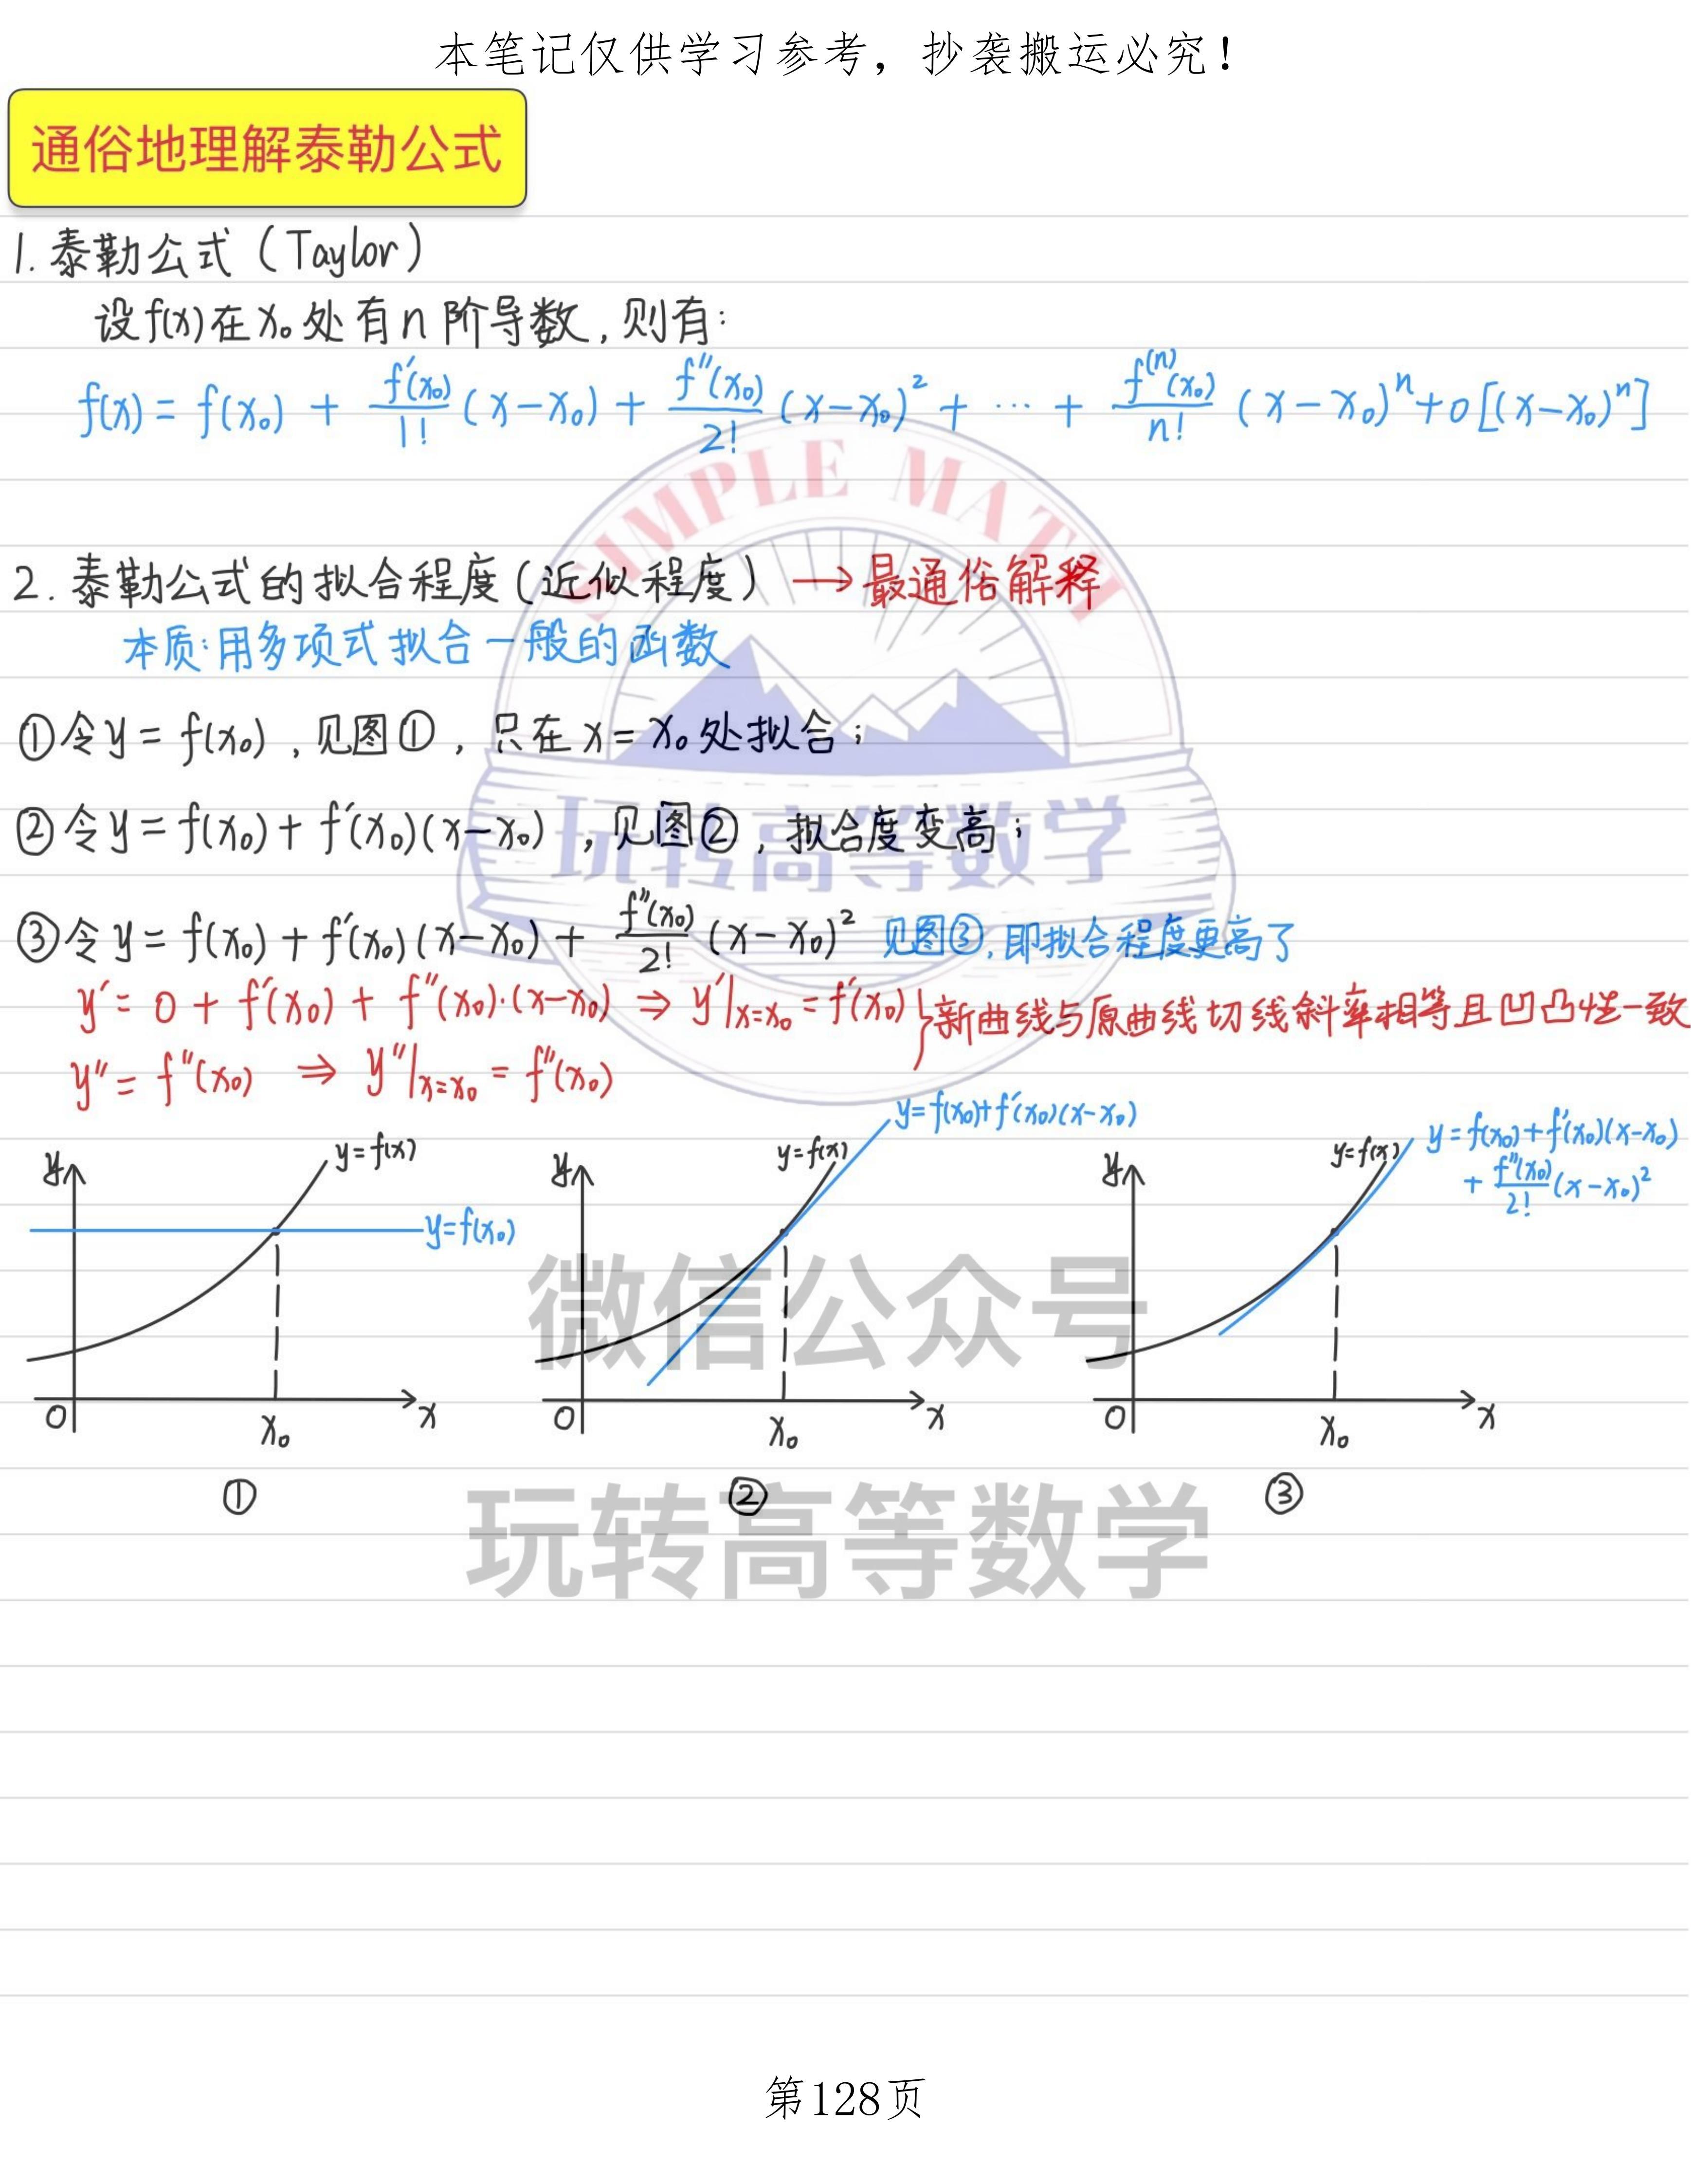 本笔记仅供学习参考，抄袭搬运必究！
通俗地理解泰勒公式
1. 泰勒公式（Taylor）
设f(x)在x₀处有n阶导数，则有：
f(x) = f(x₀) + f′(x₀)/1! (x-x₀) + f″(x₀)/2! (x-x₀)² + ⋯ + f⁽ⁿ⁾(x₀)/n! (x-x₀)ⁿ + o[(x-x₀)ⁿ]
SIMPLE MATH
2. 泰勒公式的拟合程度（近似程度）→最通俗解释
本质：用多项式拟合一般的函数
①令y = f(x₀)，见图①，只在x = x₀处拟合；
②令y = f(x₀) + f′(x₀)(x-x₀)，见图②，拟合度变高；
玩转高等数学
③令y = f(x₀) + f′(x₀)(x-x₀) + f″(x₀)/2! (x-x₀)² 见图③，即拟合程度更高了
y′ = 0 + f′(x₀) + f″(x₀)·(x-x₀) ⇒ y′|x=x₀ = f′(x₀) }新曲线与原曲线切线斜率相等且凹凸性一致
y″ = f″(x₀) ⇒ y″|x=x₀ = f″(x₀)
y y=f(x) y=f(x₀) O x₀ x ①
y y=f(x) y=f(x₀)+f′(x₀)(x-x₀) O x₀ x ②
y y=f(x) y=f(x₀)+f′(x₀)(x-x₀)
+ f″(x₀)/2! (x-x₀)² O x₀ x ③
微信公众号
玩转高等数学
第128页